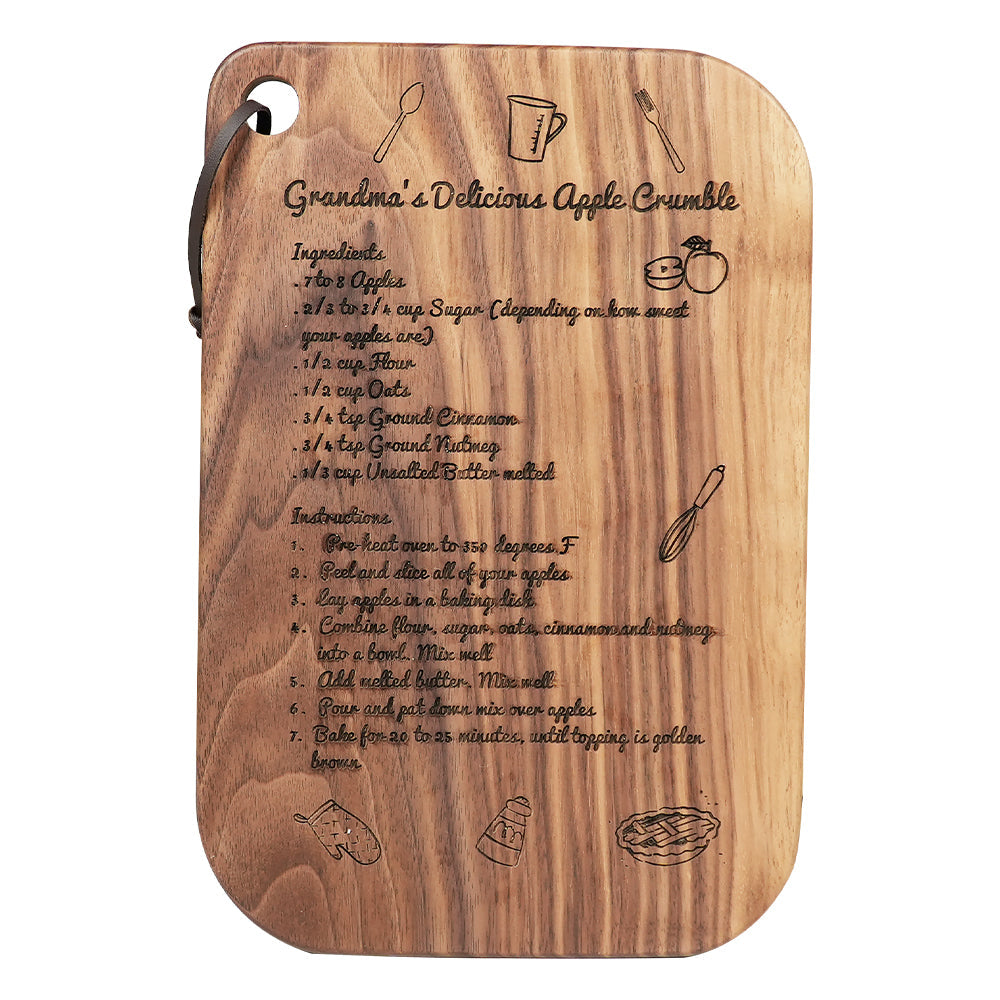 Grandma's Delicious Apple Crumble
Ingredients
. 7 to 8 Apples
. 2/3 to 3/4 cup Sugar (depending on how sweet
your apples are)
. 1/2 cup Flour
. 1/2 cup Oats
. 3/4 tsp Ground Cinnamon
. 3/4 tsp Ground Nutmeg
. 1/3 cup Unsalted Butter melted
Instructions
1. Pre-heat oven to 350 degrees F
2. Peel and slice all of your apples
3. Lay apples in a baking dish
4. Combine flour, sugar, oats, cinnamon and nutmeg
into a bowl. Mix well
5. Add melted butter. Mix well
6. Pour and pat down mix over apples
7. Bake for 20 to 25 minutes, until topping is golden
brown